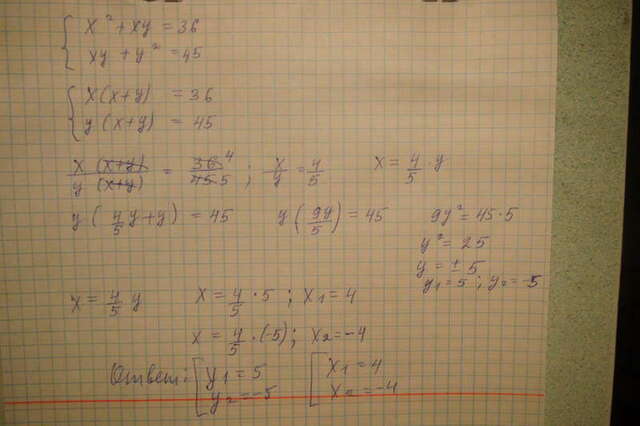 x² + xy = 36
xy + y² = 45
x(x+y) = 36
y(x+y) = 45
x(x+y)/y(x+y) = 36 4/45 5 ; x/y = 4/5 x = 4/5 · y
y(4/5 y + y) = 45 y(9y/5) = 45 9y² = 45·5
y² = 25
y = ±5
y1 = 5 ; y2 = -5
x = 4/5 y x = 4/5 · 5 ; x1 = 4
x = 4/5 · (-5); x2 = -4
Ответ: [y1 = 5 [x1 = 4
y2 = -5 x2 = -4